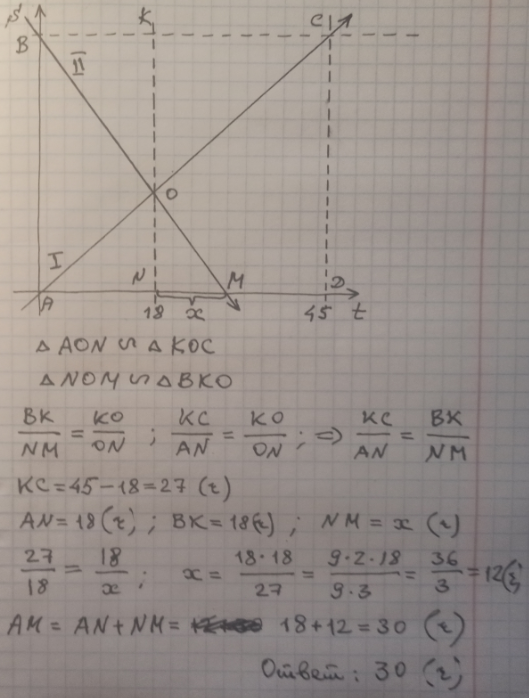 S
B
K
C
II
O
I
N
M
D
A
18
x
45
t
△ AON ∽ △ KOC
△ NOM ∽ △ BKO
BK/NM = KO/ON ; KC/AN = KO/ON ; ⇒ KC/AN = BK/NM
KC = 45 − 18 = 27 (г)
AN = 18 (г) ; BK = 18 (г) ; NM = x (г)
27/18 = 18/x ; x = 18·18/27 = 9·2·18/9·3 = 36/3 = 12 (г)
AM = AN + NM = 18 + 12 = 30 (г)
Ответ: 30 (г)